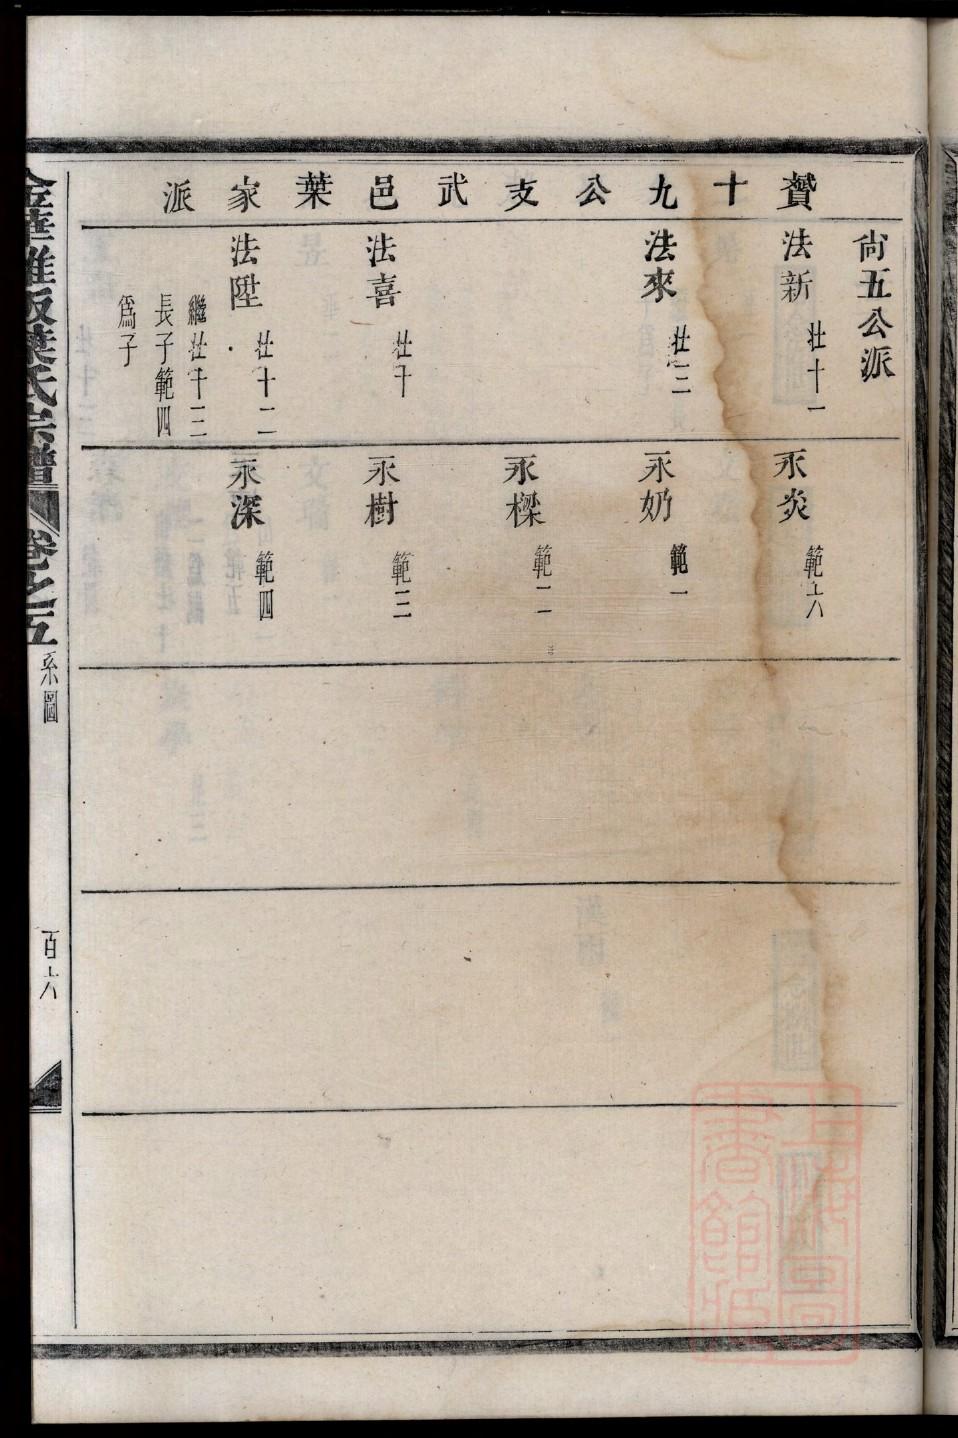 贊十九公支武邑葉家派
尙五公派
法新 壮十一
法來 壮三
法喜 壮十
法陞 壮十二
繼壮十三
長子範四
爲子
永炎 範六
永奶 範一
永樑 範二
永樹 範三
永深 範四
金華雅畈葉氏宗譜 卷之五 系圖 百六
上海圖書館藏